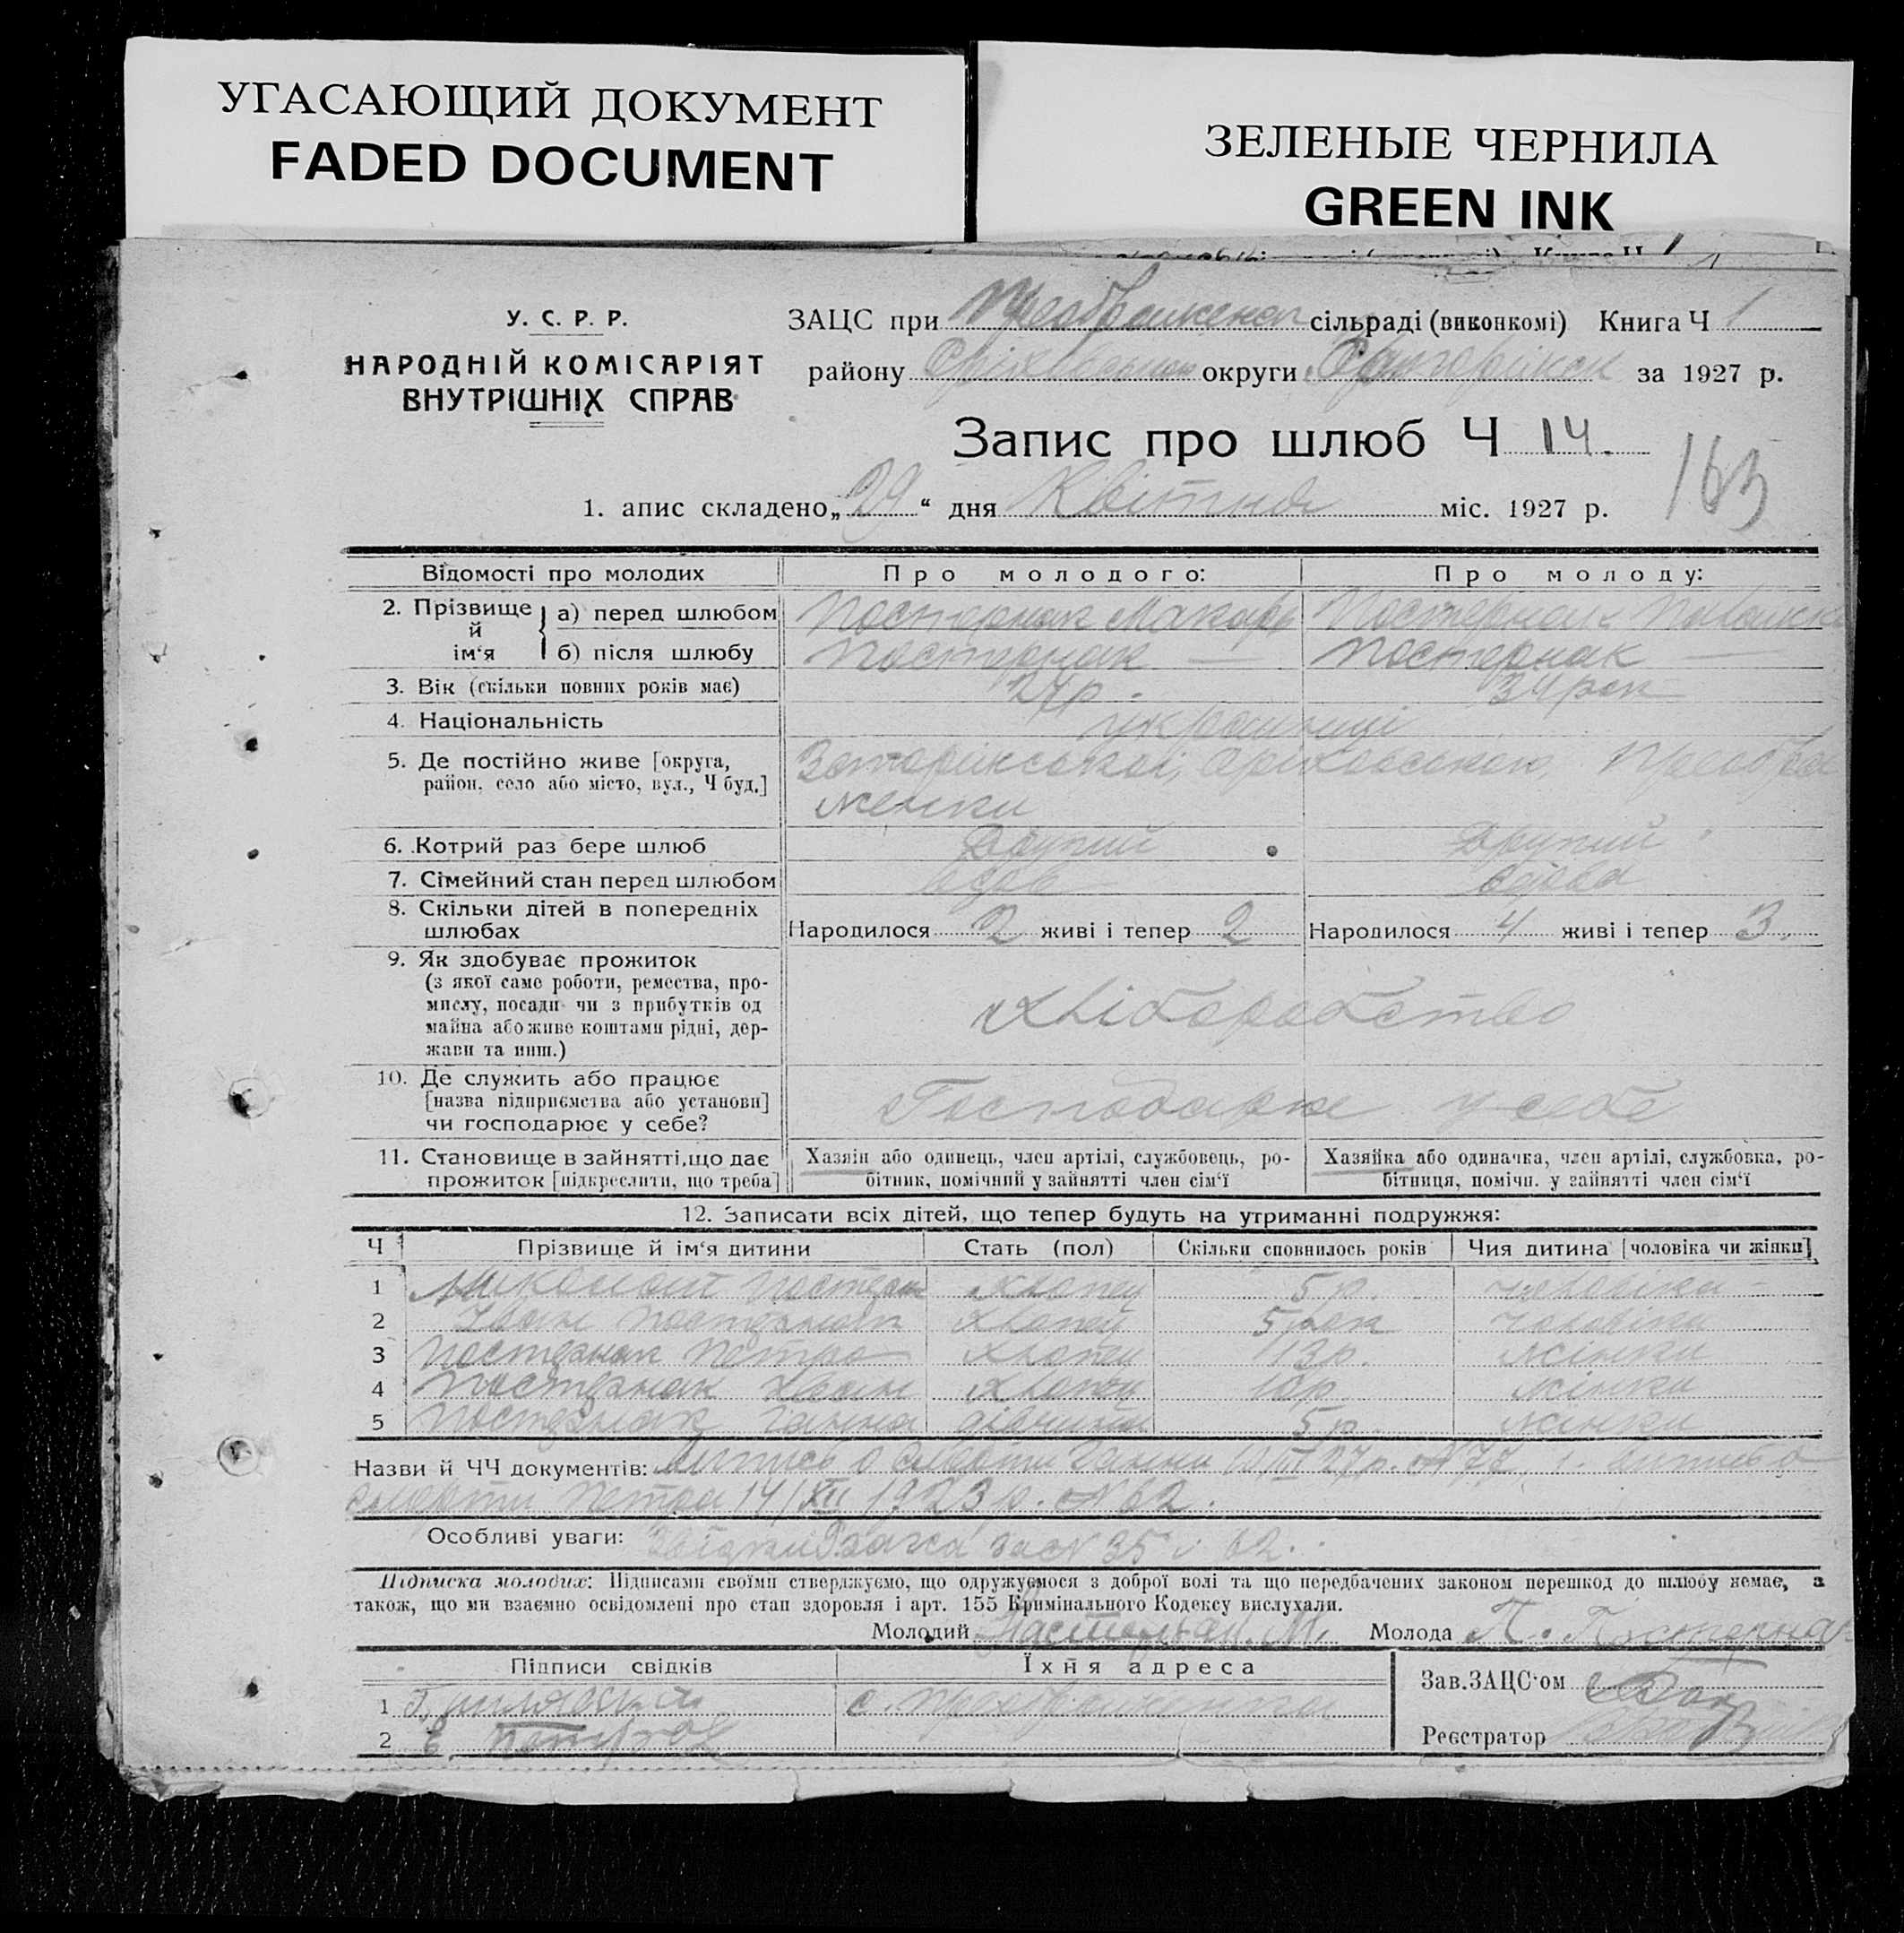 УГАСАЮЩИЙ ДОКУМЕНТ
FADED DOCUMENT
ЗЕЛЕНЫЕ ЧЕРНИЛА
GREEN INK
У. С. Р. Р.
НАРОДНІЙ КОМІСАРІЯТ
ВНУТРІШНІХ СПРАВ
ЗАЦС при сільраді (виконкомі) Книга Ч 1
району округи за 1927 р.
Запис про шлюб Ч 14.
163
1. апис складено „29“ дня Квітня міс. 1927 р.
Відомості про молодих Про молодого: Про молоду:
2. Прізвище й ім‘я а) перед шлюбом Постернак Макарь Постернак
б) після шлюбу Постернак — Постернак —
3. Вік (скільки повних років має) 34 рок
4. Національність українці
5. Де постійно живе [округа, район, село або місто, вул., Ч буд.] Преобра
женки
6. Котрий раз бере шлюб Другий Другий
7. Сімейний стан перед шлюбом вдов вдова
8. Скільки дітей в попередніх шлюбах Народилося 2 живі і тепер 2 Народилося 4 живі і тепер 3.
9. Як здобуває прожиток
(з якої саме роботи, ремества, про-
мислу, посади чи з прибутків од
майна або живе коштами рідні, дер-
жави та инш.)
Хліборобство
10. Де служить або працює
[назва підприємства або установи]
чи господарює у себе?
Господарює у себе
11. Становище в зайнятті, що дає
прожиток [підкреслити, що треба]
Хазяїн або одинець, член артілі, службовець, ро-
бітник, помічний у зайнятті член сім‘ї
Хазяйка або одиначка, член артілі, службовка, ро-
бітниця, помічн. у зайнятті член сім‘ї
12. Записати всіх дітей, що тепер будуть на утриманні подружжя:
Ч Прізвище й ім‘я дитини Стать (пол) Скільки сповнилось років Чия дитина [чоловіка чи жінки]
1 Хлопец 5 р. чоловіка
2 Іван Постернак Хлопец 5 рок чоловіка
3 Постернак Петро Хлопец 13 р. жінки
4 Постернак Іван Хлопец 10 р жінки
5 Постернак Ганна дівчина 5 р. жінки
Назви й ЧЧ документів: о смерти Ганни
смерти Петра 14/XII 1923 р. № 62.
Особливі уваги: за № 35 і 62.
Підписка молодих: Підписами своїми стверджуємо, що одружуємося з доброї волі та що передбачених законом перешкод до шлюбу немає, а
також, що ми взаємно освідомлені про стан здоровля і арт. 155 Кримінального Кодексу вислухали.
Молодий Пастернак М. Молода П. Пастернак
Підписи свідків Їхня адреса Зав. ЗАЦС‘ом
1 с. Преображенка
2 Реєстратор